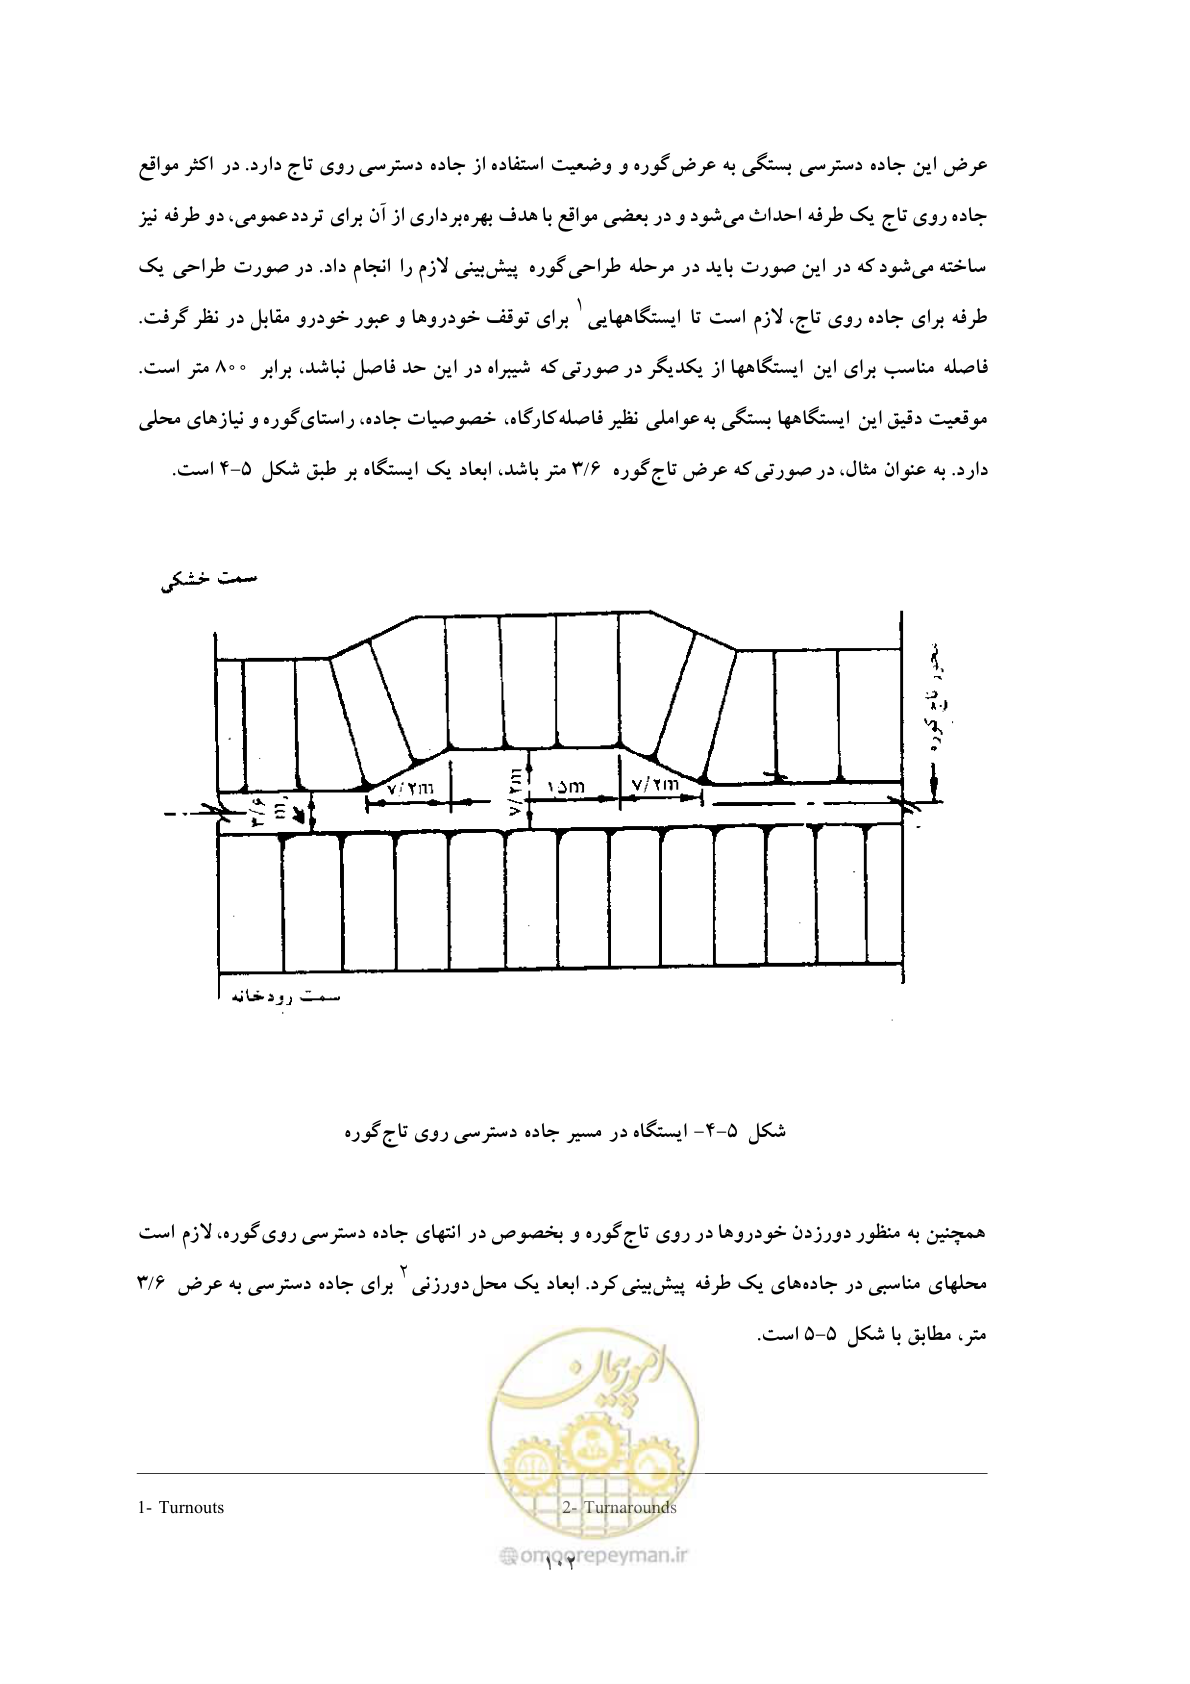 عرض این جاده دسترسی بستگی به عرض گوره و وضعیت استفاده از جاده دسترسی روی تاج دارد. در اکثر مواقع
جاده روی تاج یک طرفه احداث می‌شود و در بعضی مواقع با هدف بهره‌برداری از آن برای تردد عمومی، دو طرفه نیز
ساخته می‌شود که در این صورت باید در مرحله طراحی گوره پیش‌بینی لازم را انجام داد. در صورت طراحی یک
طرفه برای جاده روی تاج، لازم است تا ایستگاههایی۱ برای توقف خودروها و عبور خودرو مقابل در نظر گرفت.
فاصله مناسب برای این ایستگاهها از یکدیگر در صورتی که شیبراه در این حد فاصل نباشد، برابر ۸۰۰ متر است.
موقعیت دقیق این ایستگاهها بستگی به عواملی نظیر فاصله کارگاه، خصوصیات جاده، راستای گوره و نیازهای محلی
دارد. به عنوان مثال، در صورتی که عرض تاج گوره ۳/۶ متر باشد، ابعاد یک ایستگاه بر طبق شکل ۵-۴ است.
سمت خشکی
محور تاج گوره
۷/۲m
۷/۲m
۱۵m
۷/۲m
۳/۶ m
سمت رودخانه
شکل ۵-۴- ایستگاه در مسیر جاده دسترسی روی تاج گوره
همچنین به منظور دورزدن خودروها در روی تاج گوره و بخصوص در انتهای جاده دسترسی روی گوره، لازم است
محلهای مناسبی در جاده‌های یک طرفه پیش‌بینی کرد. ابعاد یک محل دورزنی۲ برای جاده دسترسی به عرض ۳/۶
متر، مطابق با شکل ۵-۵ است.
امور پیمان
1- Turnouts 2- Turnarounds
@omoorepeyman.ir
۱۰۲